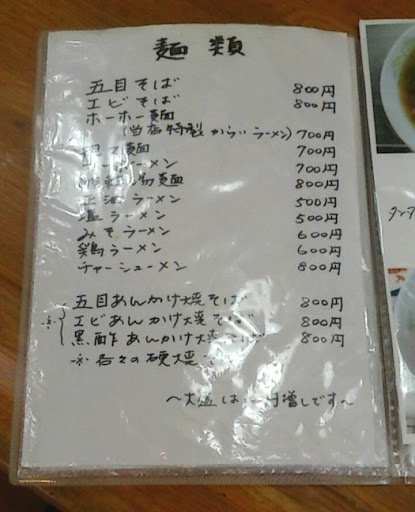 麺類
五目そば 800円
エビそば 800円
ホーホー麺
(当店特製 からいラーメン) 700円
麺 700円
ラーメン 700円
湯麺 800円
正油ラーメン 500円
塩ラーメン 500円
みそラーメン 600円
鶏ラーメン 600円
チャーシューメン 800円
五目あんかけ焼そば 800円
※ エビあんかけ焼そば 800円
黒酢あんかけ焼そば 800円
※ 各々の硬焼
〜大盛は 増しです〜
タンタ